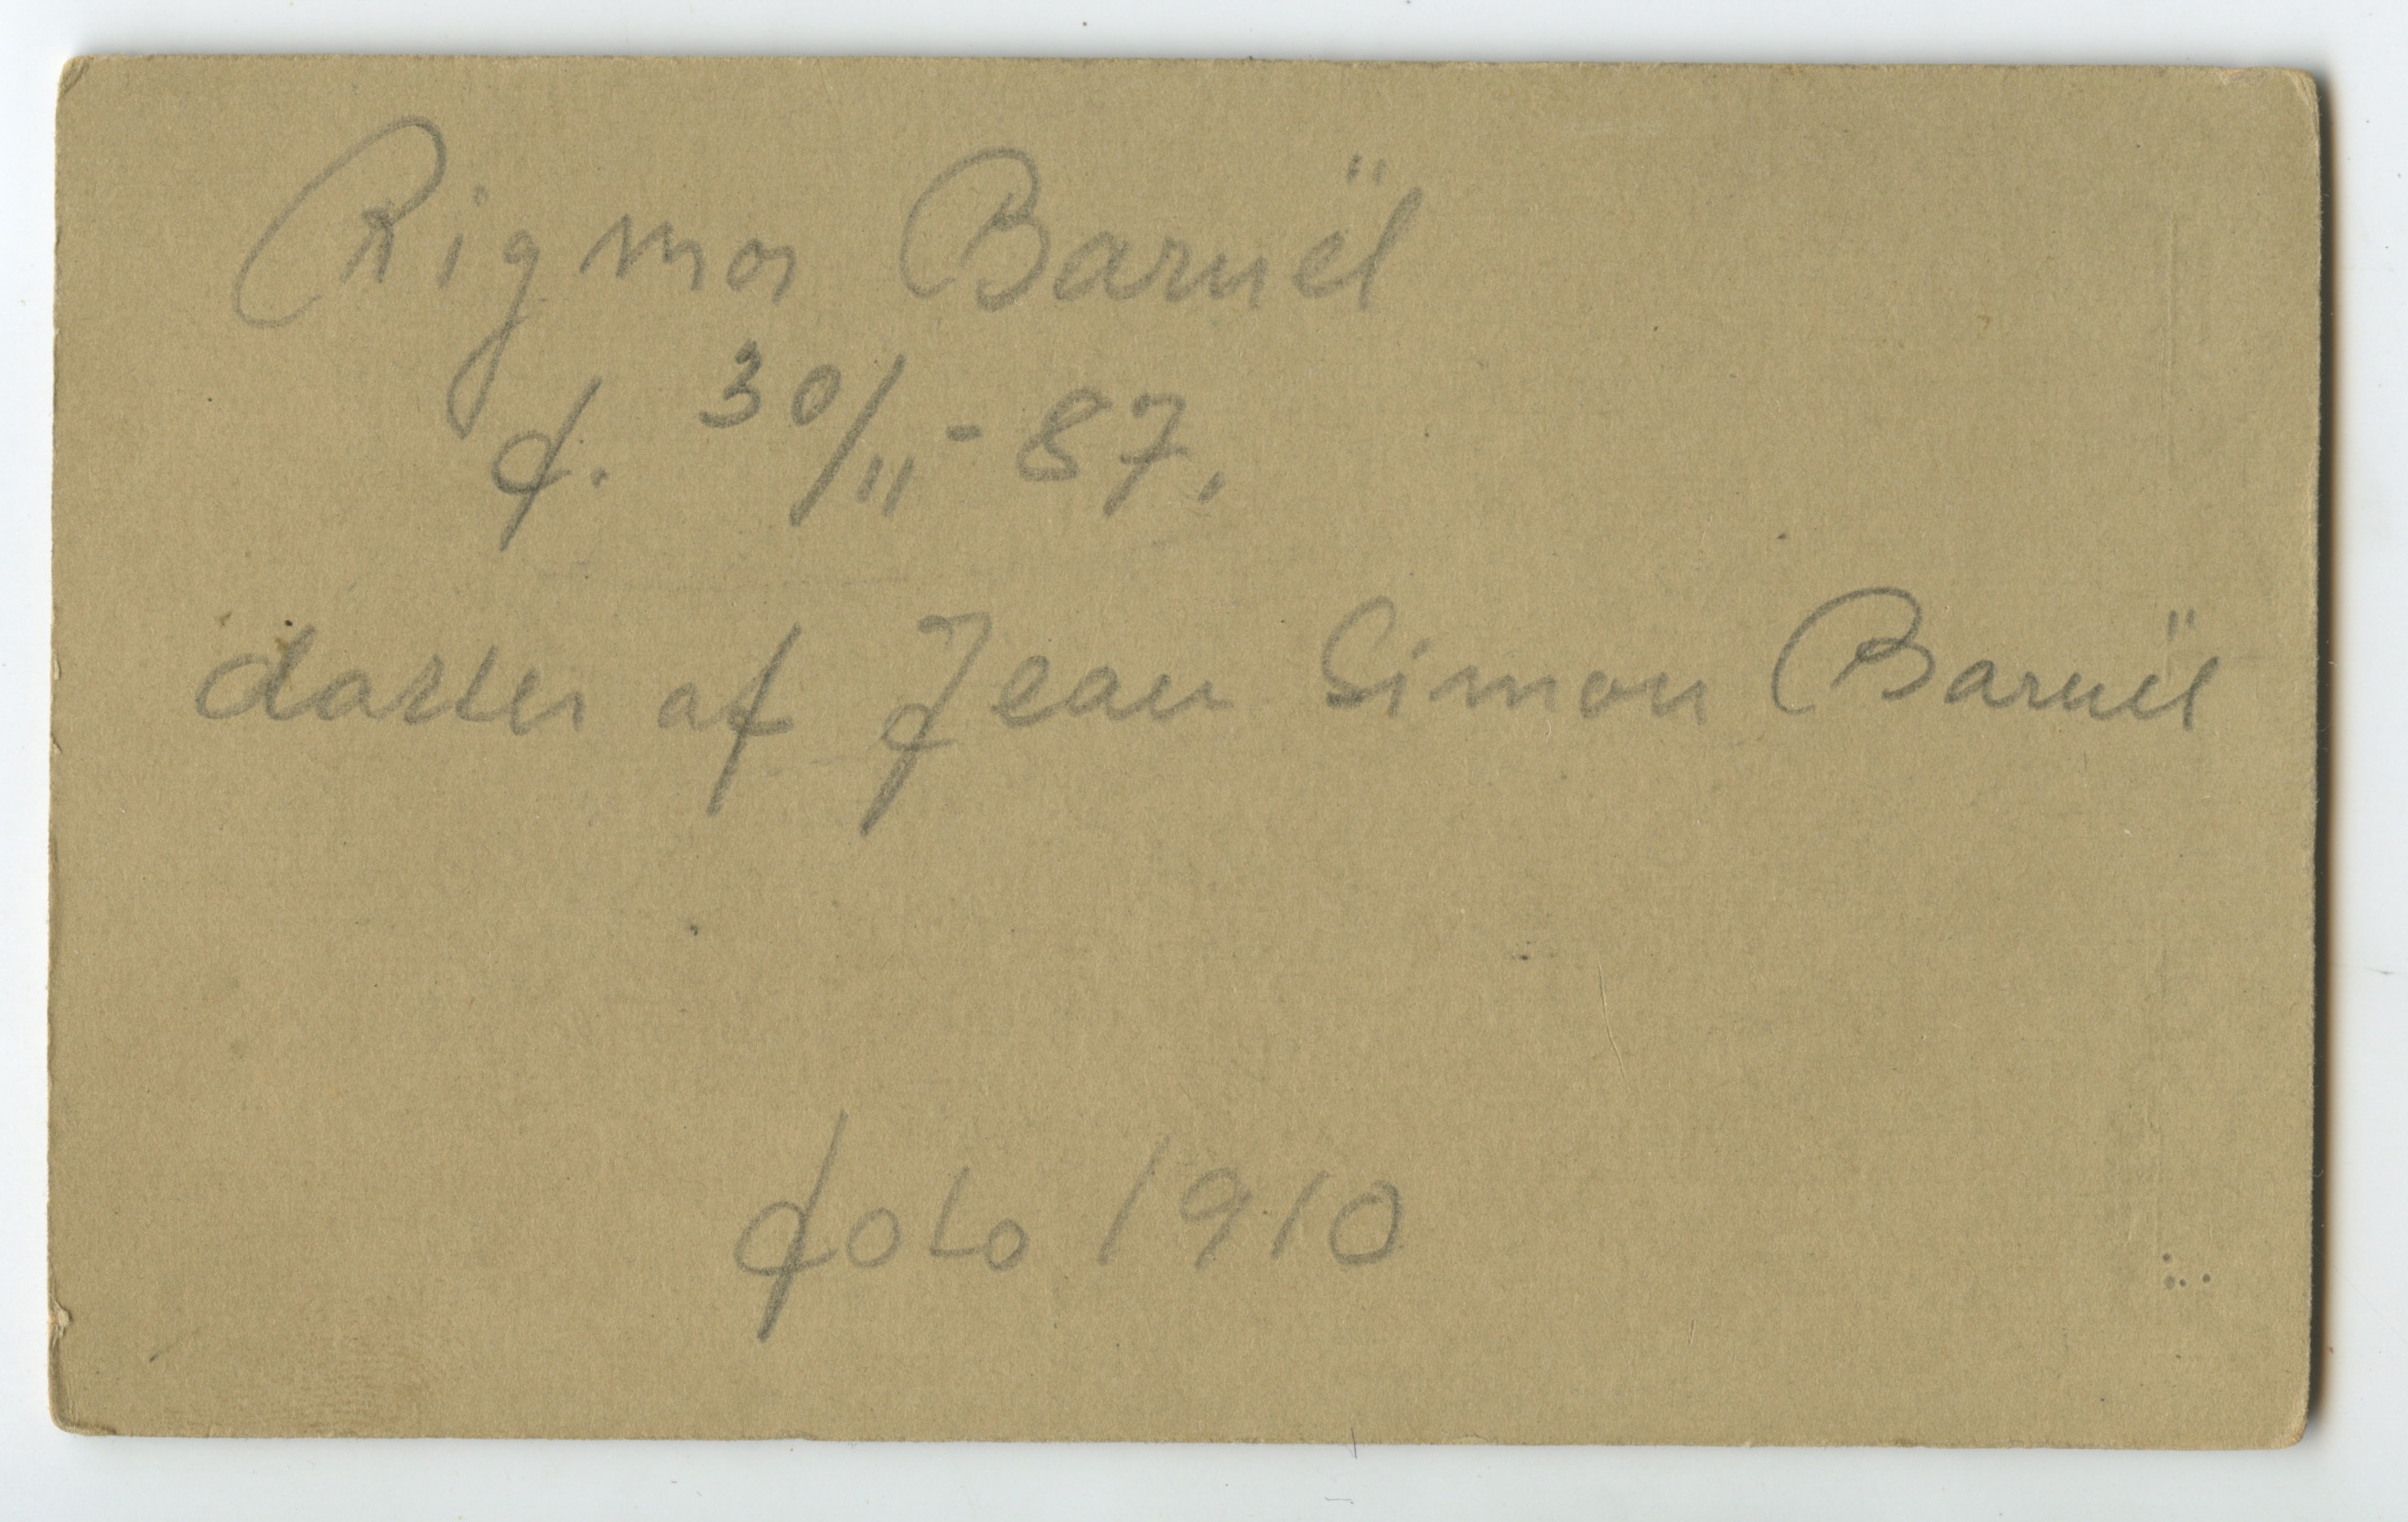 Rigmor Baruël
f. 30/11 - 87.
datter af Jean Simon Baruël
foto 1910